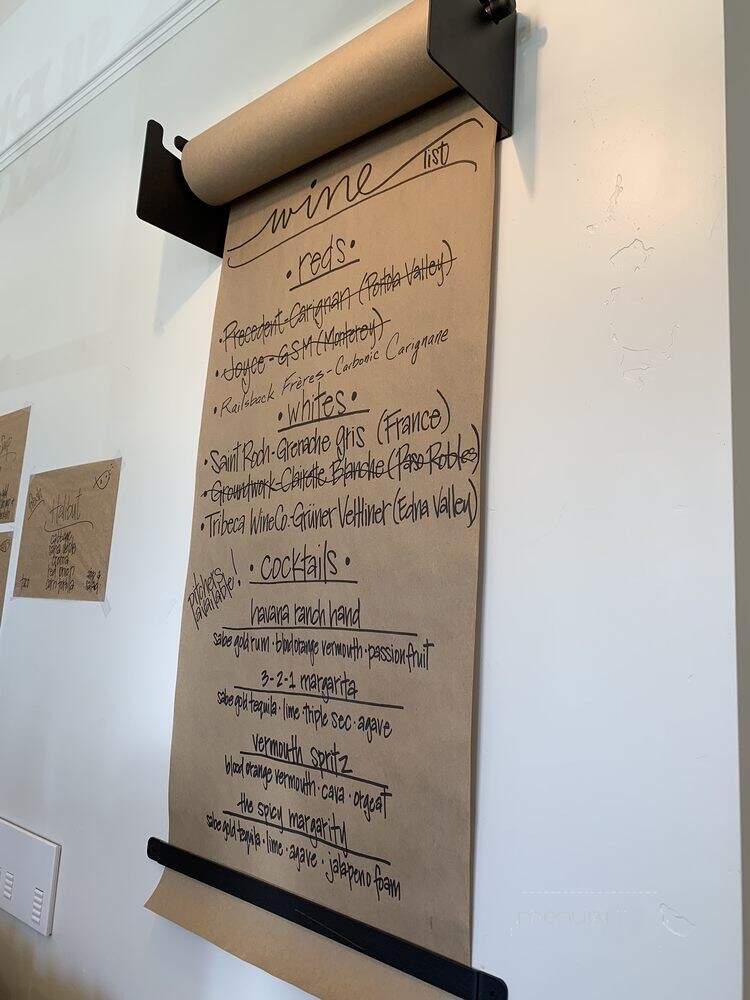 wine list
• reds •
• Precedent - Carignan (Portola Valley)
• Joyce - GSM (Monterey)
• Railsback Frères - Carbonic Carignane
• whites •
• Saint Roch - Grenache gris (France)
• Groundwork - Clairette Blanche (Paso Robles)
• Tribeca Wine Co. - Grüner Veltliner (Edna Valley)
pitchers available!
• cocktails •
havana ranch hand
sabe gold rum • blood orange vermouth • passionfruit
3-2-1 margarita
sabe gold tequila • lime • triple sec • agave
vermouth spritz
blood orange vermouth • cava • orgeat
the spicy margarity
sabe gold tequila • lime • agave • jalapeno foam
Halibut